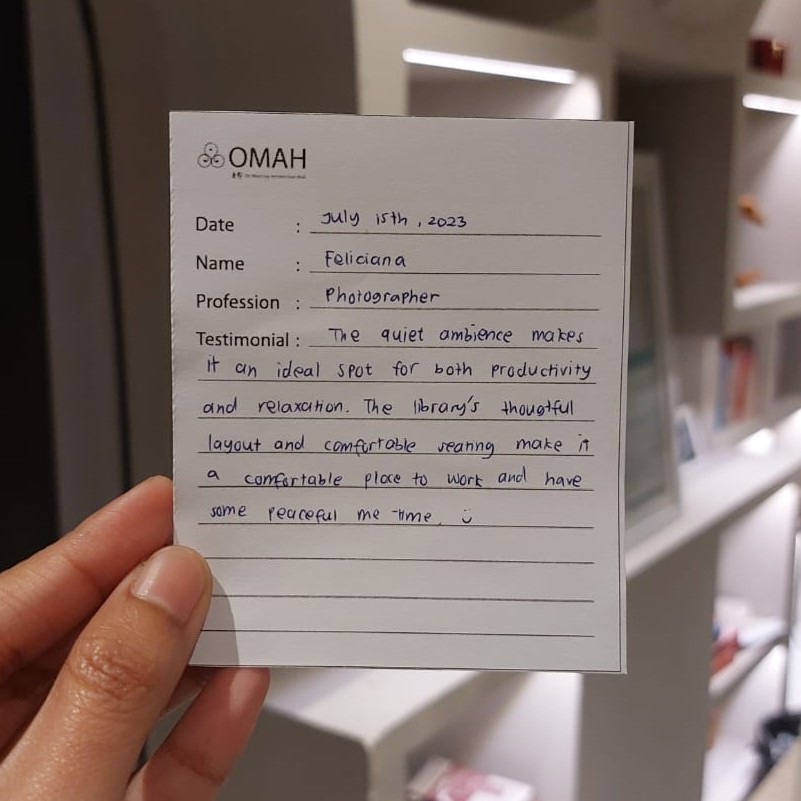 OMAH
Date : July 15th, 2023
Name : Feliciana
Profession : Photographer
Testimonial : The quiet ambience makes
it an ideal spot for both productivity
and relaxation. The library's thougtful
layout and comfortable seating make it
a comfortable place to work and have
some peaceful me time. ü